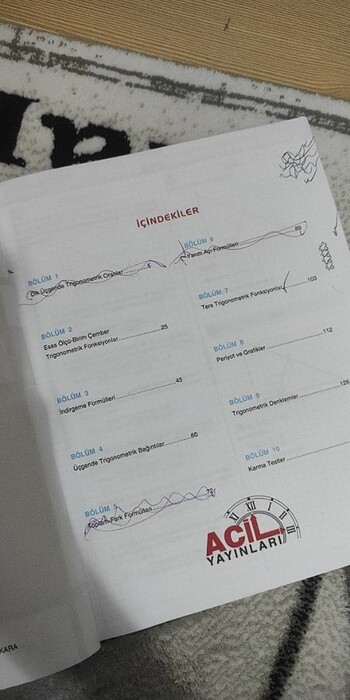 İÇİNDEKİLER
BÖLÜM 1
Dik Üçgende Trigonometrik Oranlar 5
BÖLÜM 2
Esas Ölçü-Birim Çember
Trigonometrik Fonksiyonlar 25
BÖLÜM 3
İndirgeme Formülleri 45
BÖLÜM 4
Üçgende Trigonometrik Bağıntılar 60
BÖLÜM 5
Toplam-Fark Formülleri
BÖLÜM 6
Yarım Açı Formülleri 89
BÖLÜM 7
Ters Trigonometrik Fonksiyonlar 103
BÖLÜM 8
Periyot ve Grafikler 112
BÖLÜM 9
Trigonometrik Denklemler 126
BÖLÜM 10
Karma Testler
XI XII I II III
ACİL
YAYINLARI
KARA